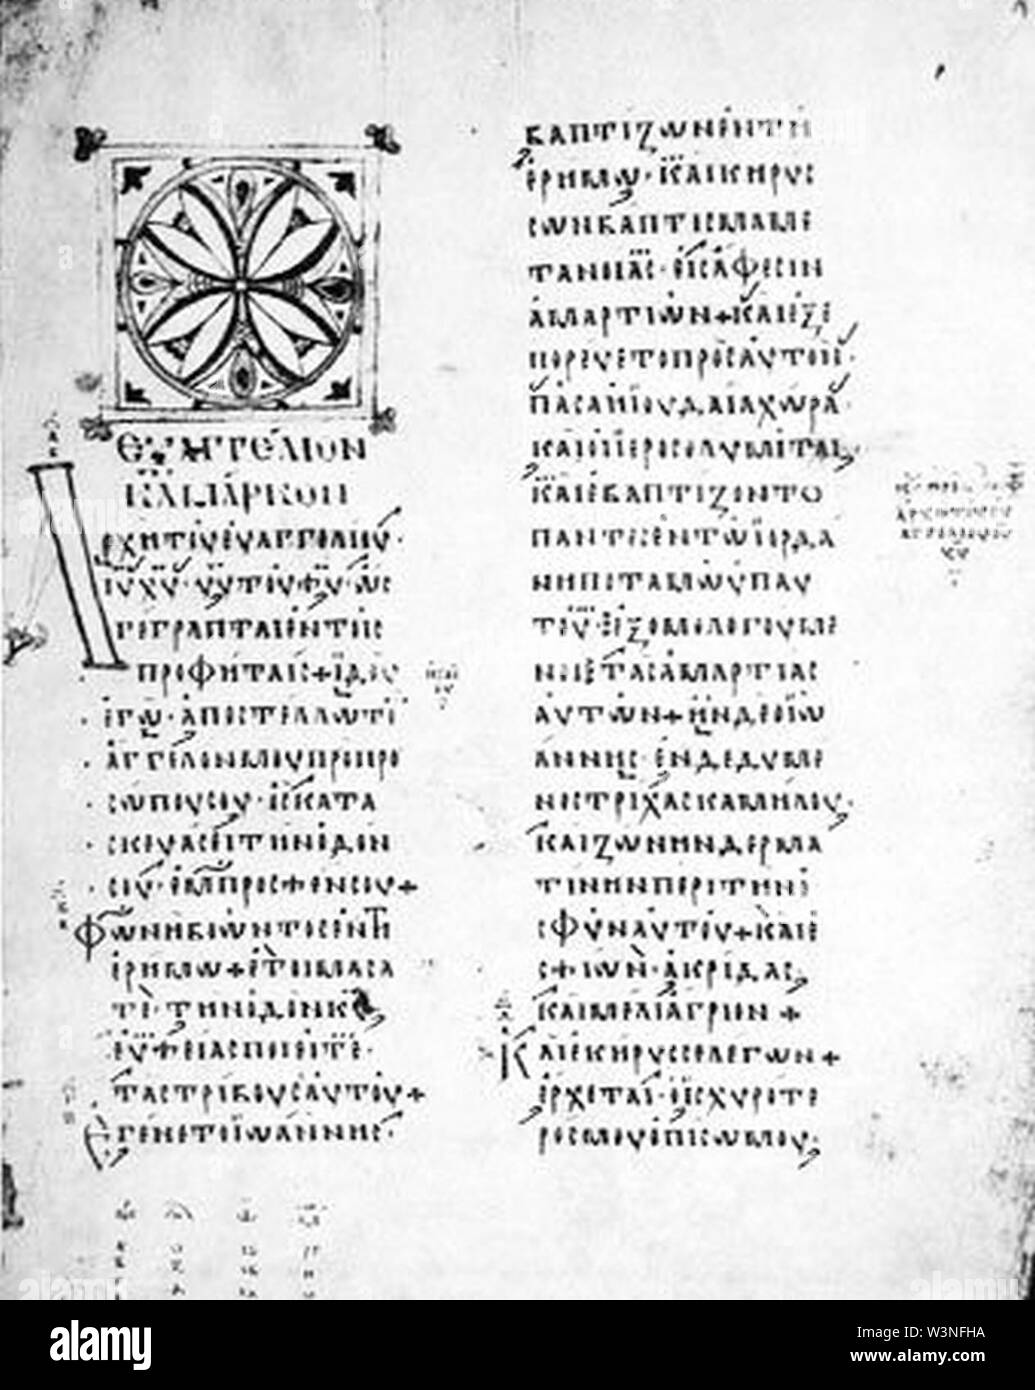 ΕΥΑΓΓΕΛΙΟΝ
ΚΑΤΑ ΜΑΡΚΟΝ
ΑΡΧΗ ΤΟΥ ΕΥΑΓΓΕΛΙΟΥ·
ΙΥ ΧΥ· ΥΥ ΤΟΥ ΘΥ· ΩΣ
ΓΕΓΡΑΠΤΑΙ ΕΝ ΤΟΙΣ
ΠΡΟΦΗΤΑΙΣ + ΙΔΟΥ
ΕΓΩ· ΑΠΟΣΤΕΛΛΩ ΤΟΝ
ΑΓΓΕΛΟΝ ΜΟΥ ΠΡΟ ΠΡΟ
ΣΩΠΟΥ ΣΟΥ· ΟΣ ΚΑΤΑ
ΣΚΕΥΑΣΕΙ ΤΗΝ ΟΔΟΝ
ΣΟΥ· ΕΜΠΡΟΣΘΕΝ ΣΟΥ +
ΦΩΝΗ ΒΟΩΝΤΟΣ ΕΝ ΤΗ
ΕΡΗΜΩ + ΕΤΟΙΜΑΣΑ
ΤΕ· ΤΗΝ ΟΔΟΝ ΚΥ
ΕΥΘΕΙΑΣ ΠΟΙΕΙΤΕ·
ΤΑΣ ΤΡΙΒΟΥΣ ΑΥΤΟΥ +
ΕΓΕΝΕΤΟ ΙΩΑΝΝΗΣ·
ΒΑΠΤΙΖΩΝ ΕΝ ΤΗ
ΕΡΗΜΩ· ΚΑΙ ΚΗΡΥΣ
ΣΩΝ ΒΑΠΤΙΣΜΑ ΜΕ
ΤΑΝΟΙΑΣ· ΕΙΣ ΑΦΕΣΙΝ
ΑΜΑΡΤΙΩΝ + ΚΑΙ ΕΞΕ
ΠΟΡΕΥΕΤΟ ΠΡΟΣ ΑΥΤΟΝ·
ΠΑΣΑ Η ΙΟΥΔΑΙΑ ΧΩΡΑ·
ΚΑΙ ΟΙ ΙΕΡΟΣΟΛΥΜΙΤΑΙ
ΚΑΙ ΕΒΑΠΤΙΖΟΝΤΟ
ΠΑΝΤΕΣ ΕΝ ΤΩ ΙΟΡΔΑ
ΝΗ ΠΟΤΑΜΩ ΥΠ ΑΥ
ΤΟΥ· ΕΞΟΜΟΛΟΓΟΥΜΕ
ΝΟΙ ΤΑΣ ΑΜΑΡΤΙΑΣ
ΑΥΤΩΝ + ΗΝ ΔΕ Ο ΙΩ
ΑΝΝΗΣ· ΕΝΔΕΔΥΜΕ
ΝΟΣ ΤΡΙΧΑΣ ΚΑΜΗΛΟΥ·
ΚΑΙ ΖΩΝΗΝ ΔΕΡΜΑ
ΤΙΝΗΝ ΠΕΡΙ ΤΗΝ Ο
ΣΦΥΝ ΑΥΤΟΥ + ΚΑΙ Ε
ΣΘΙΩΝ· ΑΚΡΙΔΑΣ
ΚΑΙ ΜΕΛΙ ΑΓΡΙΟΝ +
ΚΑΙ ΕΚΗΡΥΣΣΕ ΛΕΓΩΝ +
ΕΡΧΕΤΑΙ· Ο ΙΣΧΥΡΟΤΕ
ΡΟΣ ΜΟΥ ΟΠΙΣΩ ΜΟΥ·
alamy
Image ID: W3NFHA
www.alamy.com